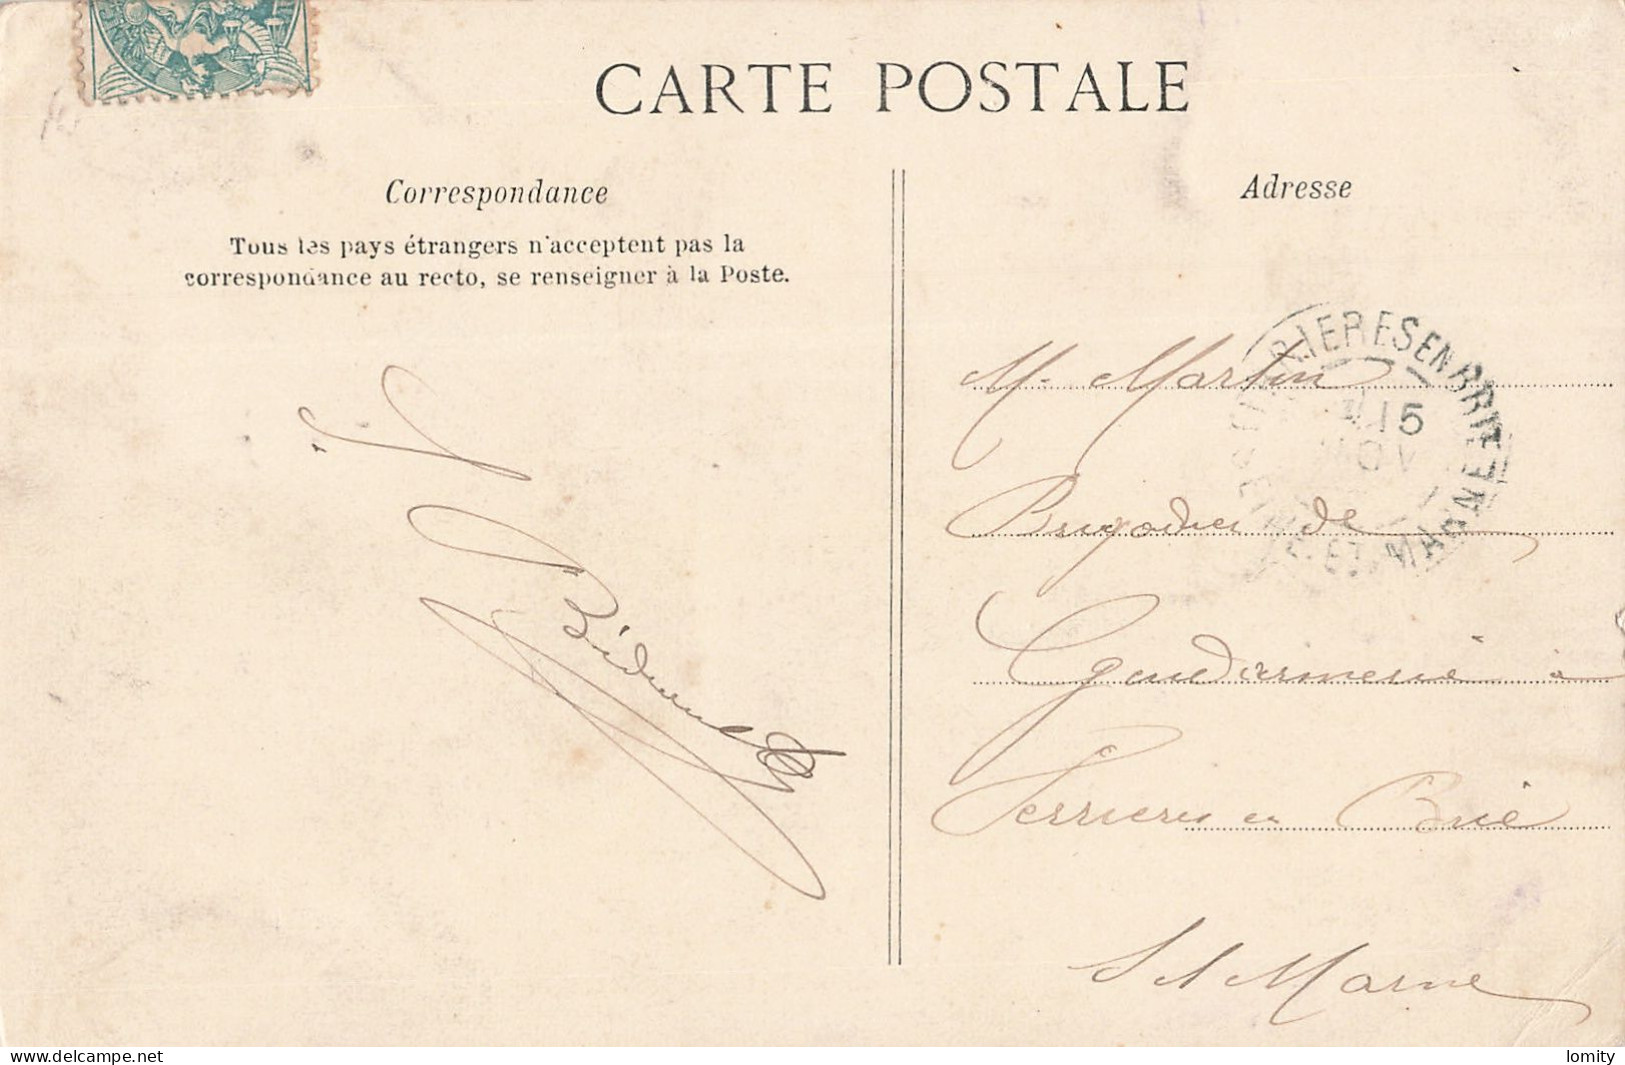 CARTE POSTALE
Correspondance
Tous les pays étrangers n'acceptent pas la
correspondance au recto, se renseigner à la Poste.
Adresse
RIERES EN BRIE
15
NOV
ET MARNE
M. Martin
Brigadier de
Gendarmerie à
Ferrieres en Brie
S et Marne
delcampe.net
lomity